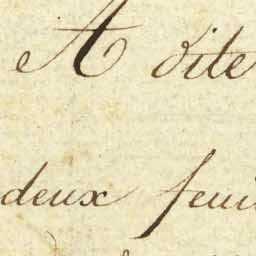 A dite
deux feui